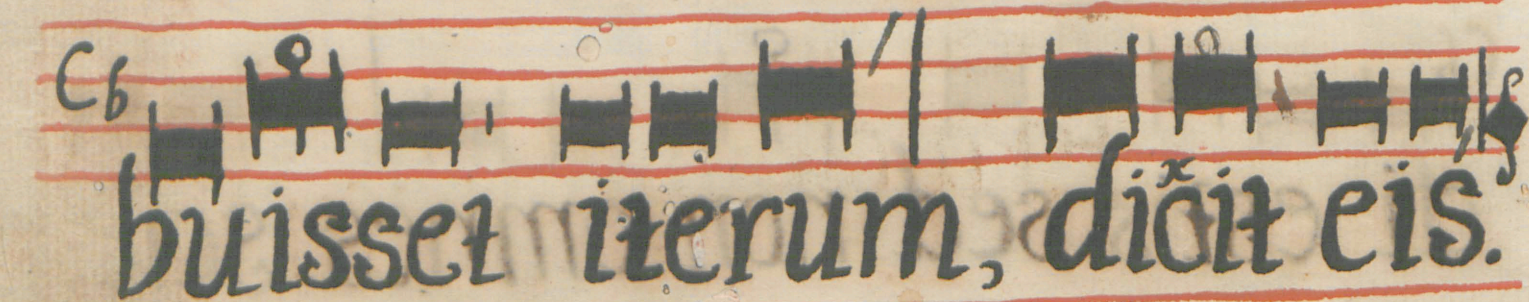 buisset iterum, dicit eis.